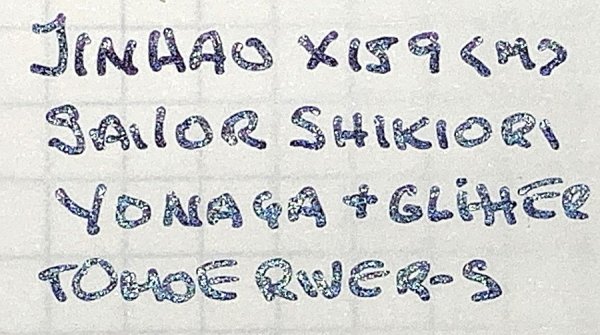 JINHAO X159 <M>
SAILOR SHIKIORI
YONAGA + GLITTER
TOMOE RIVER-S